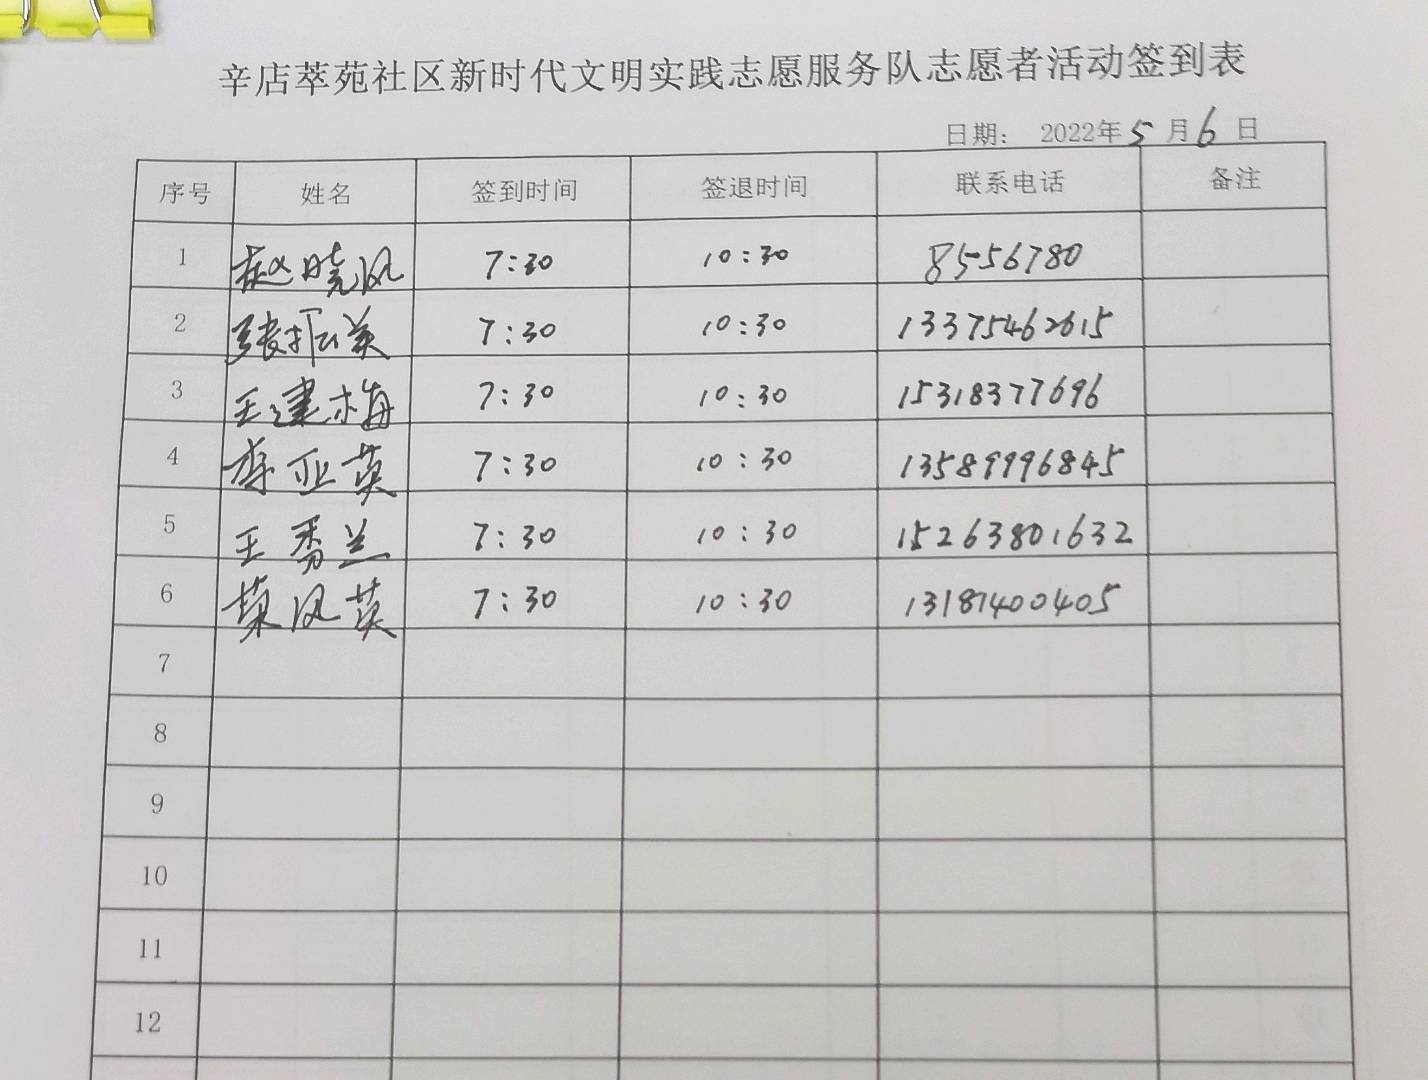 辛店萃苑社区新时代文明实践志愿服务队志愿者活动签到表
日期： 2022年5月6日
序号 姓名 签到时间 签退时间 联系电话 备注
1 赵晓风 7:30 10:30 8556780
2 张振美 7:30 10:30 13375462615
3 王建梅 7:30 10:30 15318377696
4 李亚英 7:30 10:30 13589996845
5 王秀兰 7:30 10:30 15263801632
6 风英 7:30 10:30 13181400405
7
8
9
10
11
12